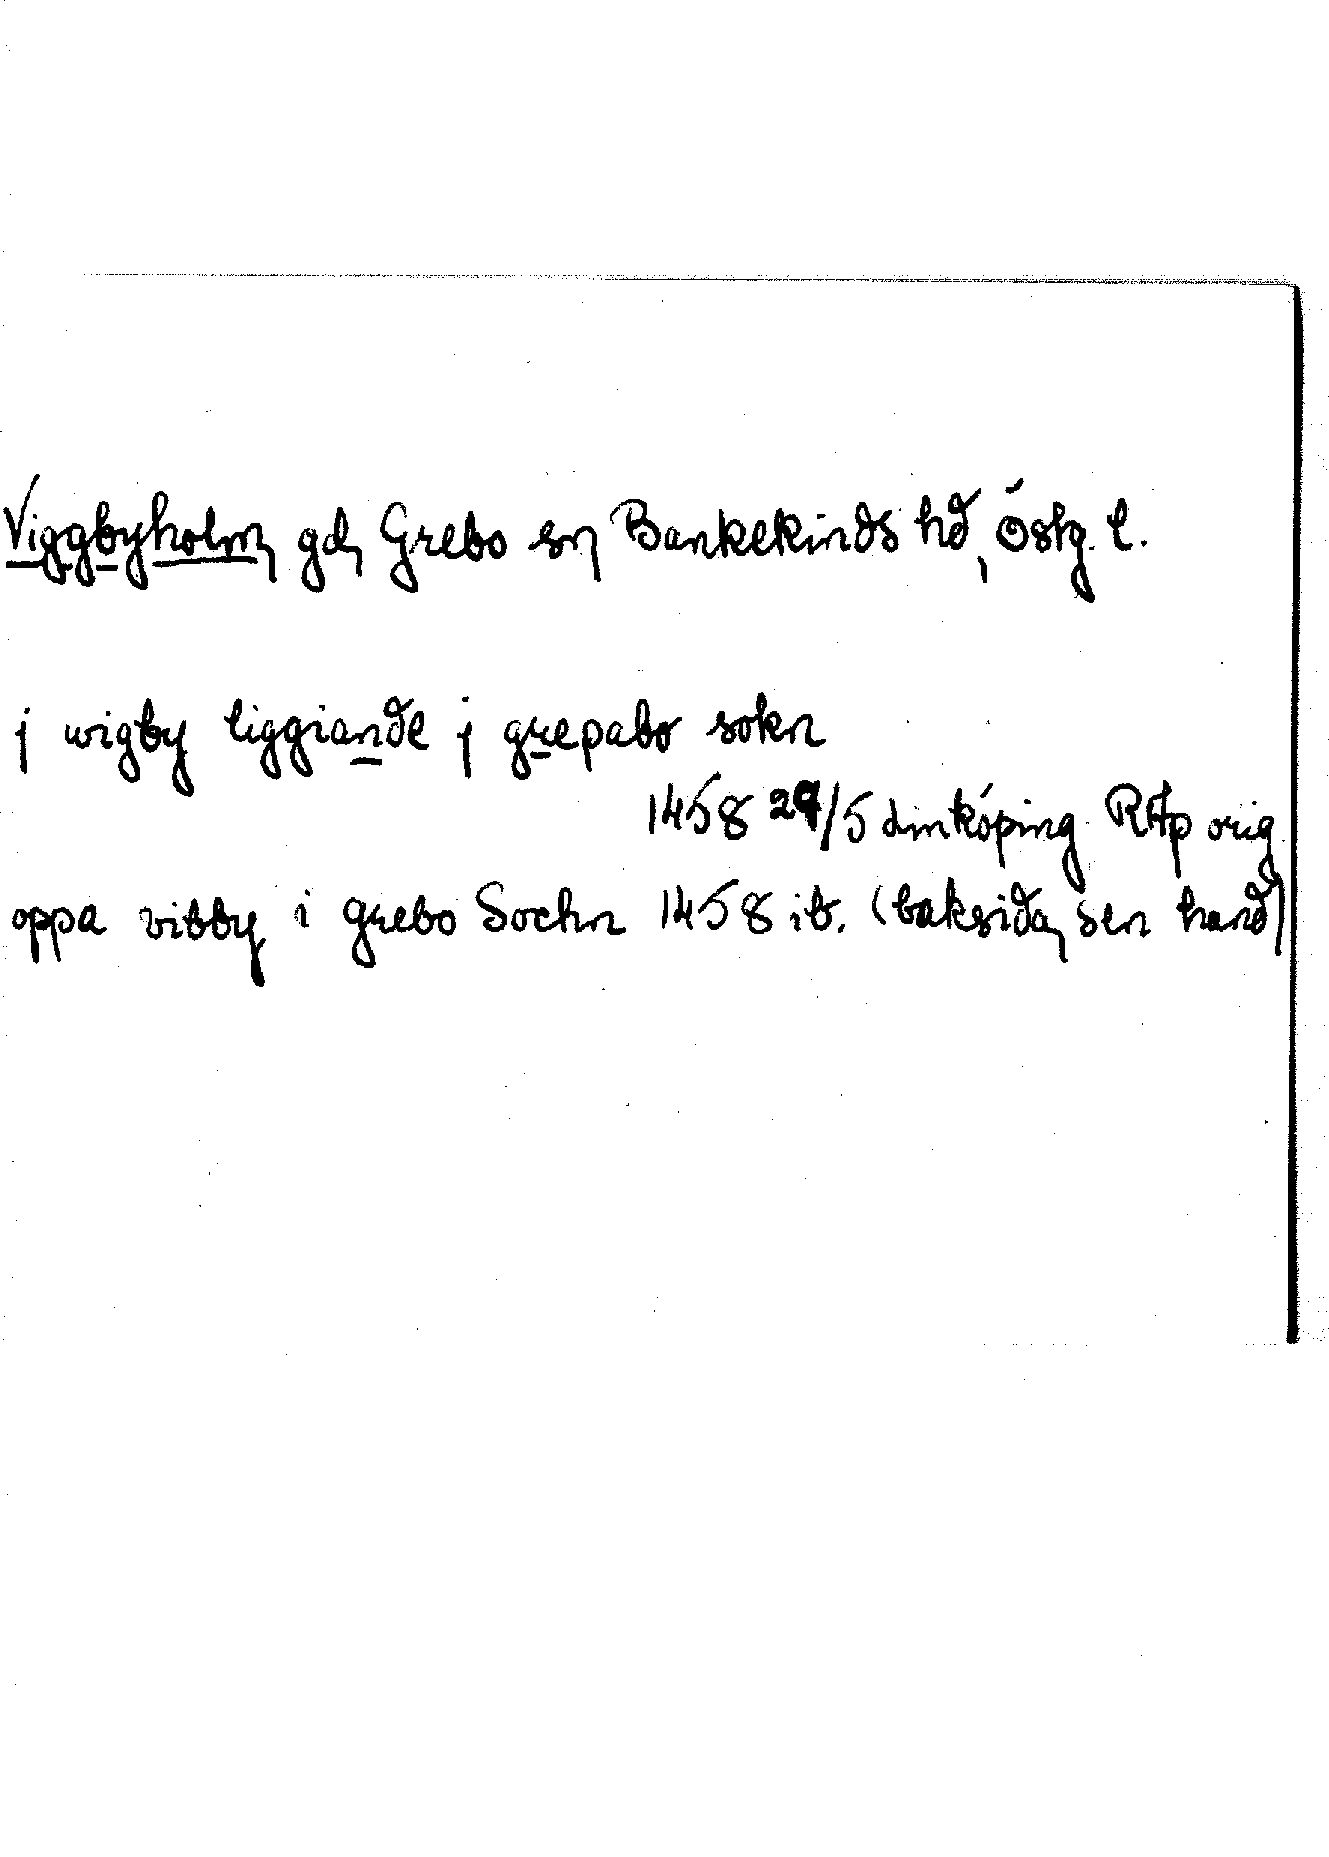 Viggbyholm, gd, Grebo sn, Bankekinds hd, Östg. l.
j wigby liggiande j grepabo sokn
1458 29/5 Linköping RAp orig
oppa vibby i grebo Sochn 1458 ib. (baksida, sen hand)